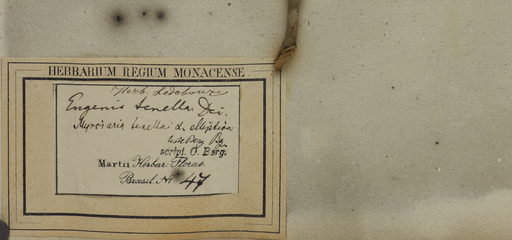 HERBARIUM REGIUM MONACENSE
Herb. Ledebour
Eugenia tenella Dei.
Myrciaria tenella α elliptica
teste Berg
script. O. Berg.
Martii Herbar. Florae
Brasil. No 47